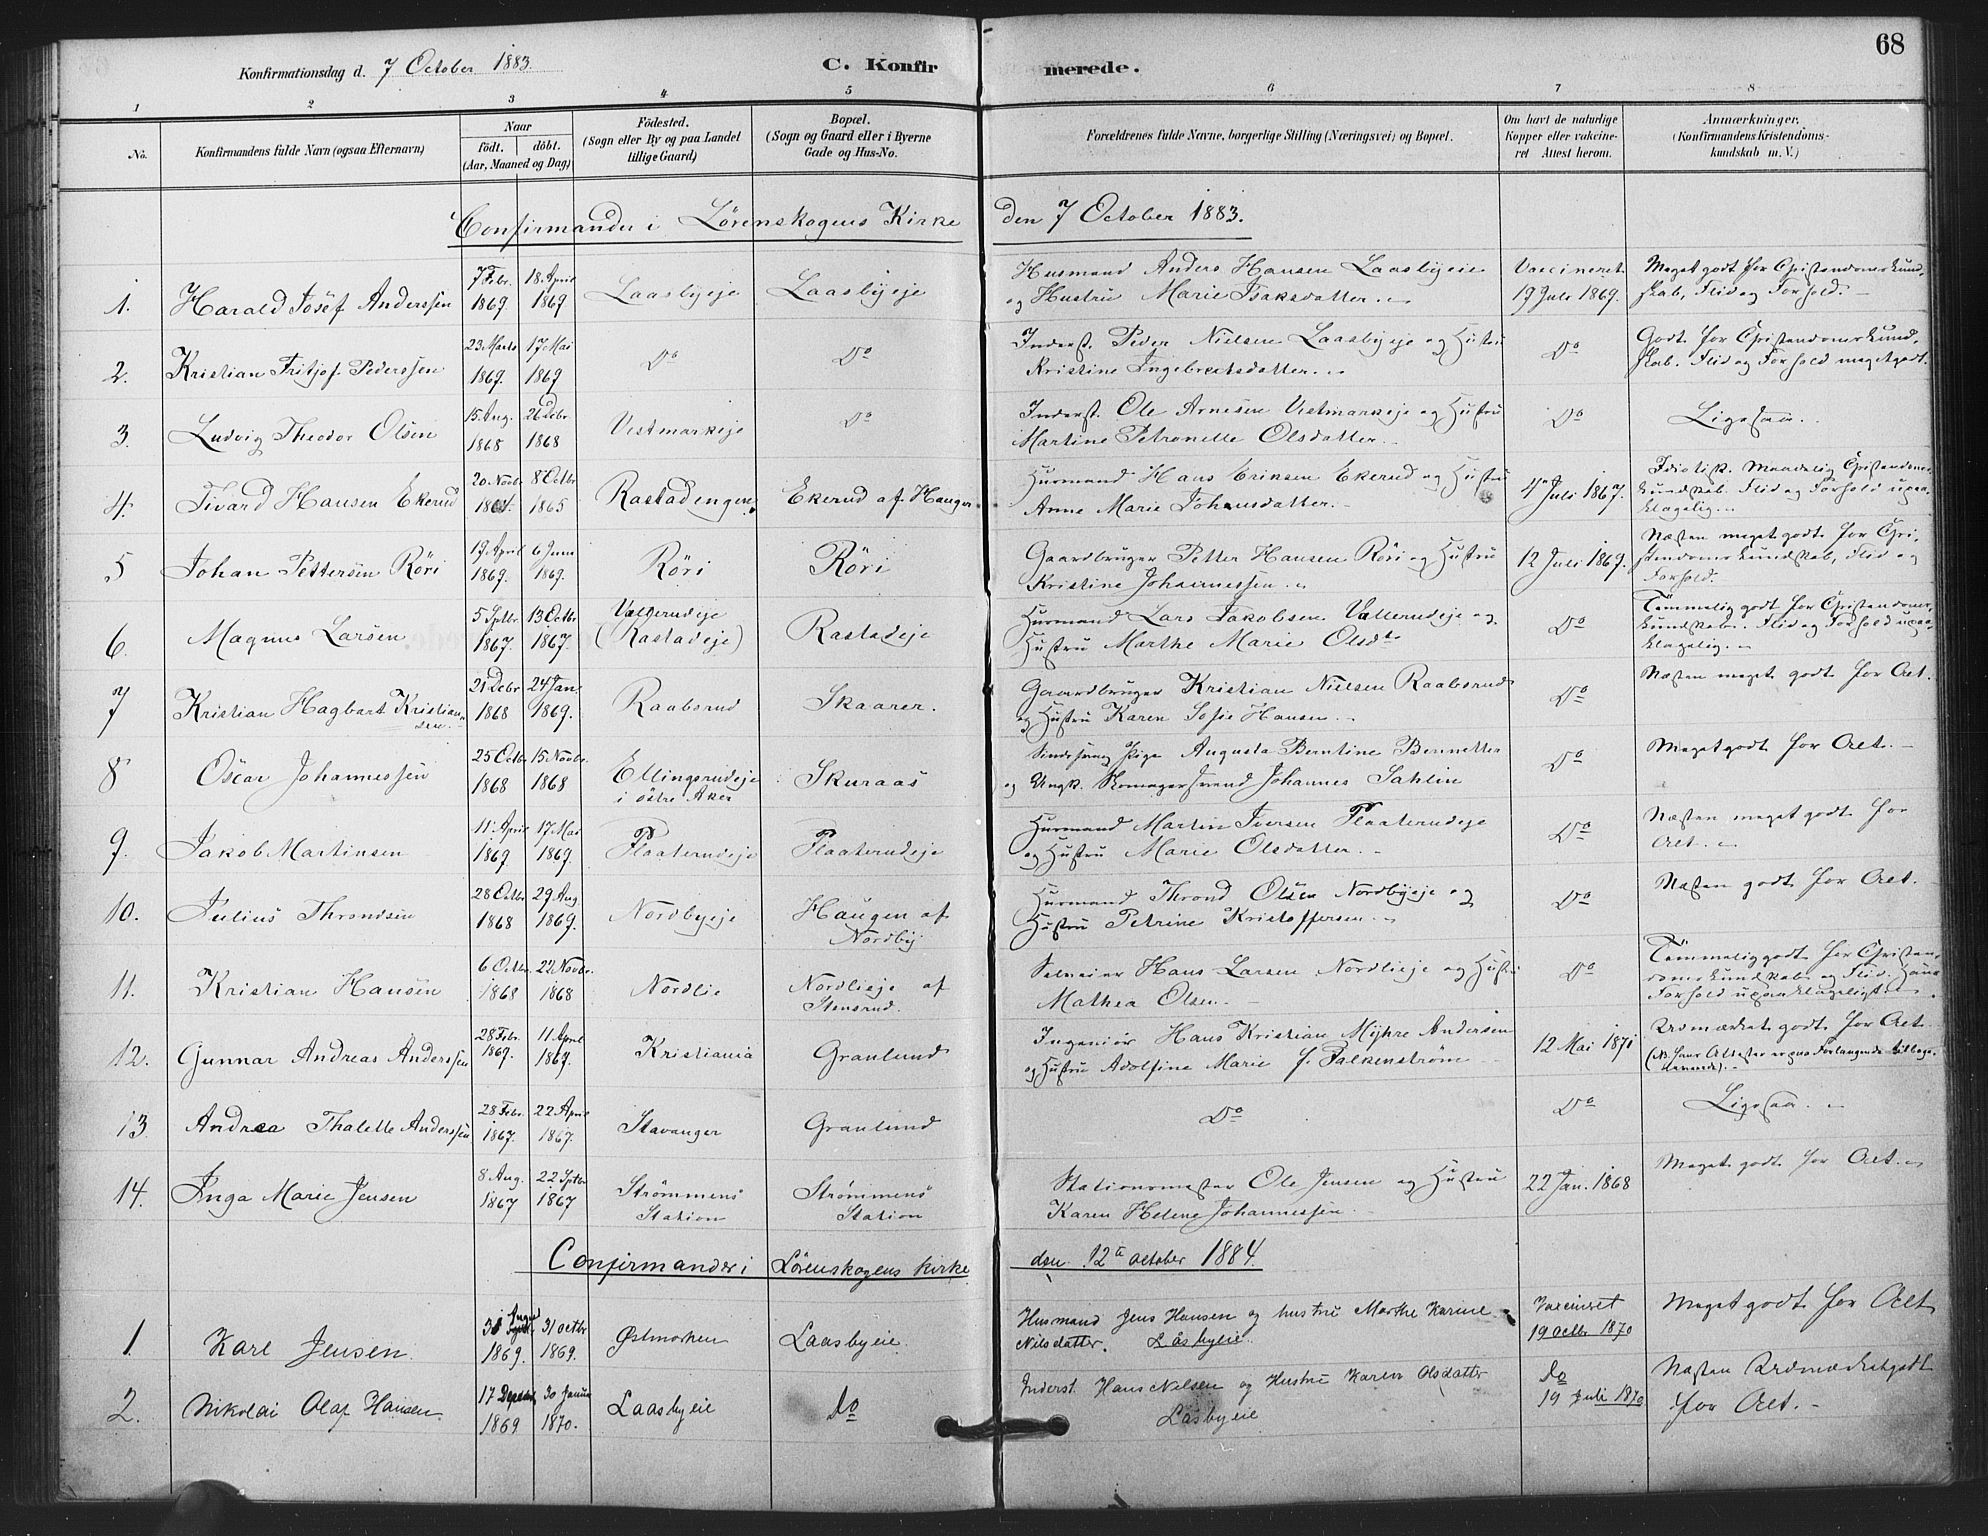 68
Konfirmationsdag d. 7 October 1883.
C. Konfirmerede.
1 2 3 4 5 6 7 8
No.
Konfirmandens fulde Navn (ogsaa Efternavn)
Naar
födt. döbt.
(Aar, Maaned og Dag)
Födested.
(Sogn eller By og paa Landet
tillige Gaard)
Bopæl.
(Sogn og Gaard eller i Byerne
Gade og Hus-No.
Forældrenes fulde Navne, borgerlige Stilling (Næringsvei) og Bopæl.
Om havt de naturlige
Kopper eller vakcine-
ret Attest herom.
Anmærkninger.
(Konfirmandens Kristendoms-
kundskab m. V.)
Confirmander i Lørenskogens Kirke den 7 October 1883.
1. Harald Josef Anderssen 7 Febr. 1869. 18 April 1869 Laasbyeje Laasbyeje
Husmand Anders Hansen Laasbyeie
og Hustru Marie Isaksdatter.
Vaccineret
19 Julr 1869.
Meget godt for Cristendomskund-
skab, Flid og Forhold.
2. Kristian Fritjof Pederssen 23 Marts 1869. 17 Mai 1869 Do Do
Inderst. Peder Nielsen Laasbyeje og Hustru
Kristine Ingebretsdatter.
Do
Godt for Cristendomskund-
skab. Flid og Forhold meget godt.
3. Ludvig Theodor Olsen 15 Aug. 1868 26 Dcbr. 1868 Vestmarkeje Do
Inderst. Ole Arnesen Vestmarkeje og Hustru
Martine Petronelle Olsdatter.
Do
Ligesaa.
4. Sivard Hansen Ekerud 20 Novbr 1864 8 Octbr 1865 Rastadengen. Ekerud af Hauger
Husmand Hans Eriksen Ekerud og Hustru
Anne Marie Johansdatter.
4 Juli 1867.
Idiotisk. Maadelig Cristendoms-
kundskab. Flid og Forhold upaa-
klagelig.
5 Johan Pettersen Röri 19 April 1869. 6 Juni 1869. Röri Röri
Gaardbruger Petter Hansen Röri og Hustru
Kristine Johannessen.
12 Juli 1869.
Næsten meget godt for Cri-
stendomskundskab, Flid og
Forhold.
6. Magnus Larsen 5 Sptbr. 1867. 13 Octbr 1867. Vallerudeje
(Rastadeje) Rastadeje
Husmand Lars Jakobsen Vallerudeje og
Hustru Marthe Marie Olsdt
Do
Temmelig godt for Cristendoms-
kundskab. Flid og Forhold upaa-
klagelig.
7 Kristian Hagbart Kristian-
sen. 21 Dcbr 1868 24 Jan. 1869. Raabsrud Skaarer.
Gaardbruger Kristian Nielsen Raabsrud
og Hustru Karen Sofie Hansen.
Do
Næsten meget godt for Alt.
8 Oscar Johannessen 25 Octbr 1868 15 Novbr. 1868 Ellingsrudeje
i østre Aker Skuraas
Pige Augusta Berntine Bennetter
og Ungk. Skomagersvend Johannes Sahlin
Do
Meget godt for Alt.
9. Jakob Martinsen 11 April 1869. 17 Mai 1869. Flaaterudeje Flaaterudeje
Husmand Martin Iversen Flaaterudeje
og Hustru Marie Olsdatter.
Do
Næsten meget godt for
Alt.
10. Julius Throndsen 28 Octbr 1868 29 Aug. 1869. Nordbyeje Haugen af
Nordby.
Husmand Thrond Olsen Nordbyeje og
Hustru Petrine Kristoffersen.
Do
Næsten godt for Alt.
11. Kristian Hansen 6 Octbr. 1868 22 Novbr. 1868 Nordlie Nordlieje af
Stensrud.
Selveier Hans Larsen Nordlieje og Hustru
Mathea Olsen.
Do
Temmelig godt for Cristen-
domskundskab og Flid. Hans
Forhold upaaklageligt.
12. Gunnar Andreas Anderssen 28 Febr. 1869. 11 April 1869. Kristiania Granlund
Ingeniør Hans Kristian Myhre Andersen
og Hustru Adolfine Marie f. Falkenstrøm
12 Mai 1871
Udmærket godt for Alt
13. Andrea Thalette Anderssen 28 Febr. 1867. 22 April 1867. Stavanger Granlund
Do
Do
Ligesaa.
14. Inga Marie Jensen 8 Aug. 1867 22 Sptbr 1867 Strømmens
Station Strømmens
Station
Stationsmester Ole Jensen og Hustru
Karen Helene Johannessen.
22 Jan. 1868
Meget godt for Alt.
Confirmander i Lørenskogens kirke den 12te october 1884.
1. Karl Jensen. 31 August 1869. 31 octbr 1869. Østmorken Laasbyeie.
Husmand Jens Hansen og hustru Marthe Karine
Nilsdatter. Låsbyeie.
Vaccineret
19 Octbr 1870
Meget godt for Alt
2. Nikolai Olaf Hansen. 17 1869 30 Januar 1870. Laasbyeie do
Inderst. Hans Nilsen og Hustru Karen Olsdatter
Låsbyeie
do
19 Juli 1870
Næsten Udmærket godt
for Alt.